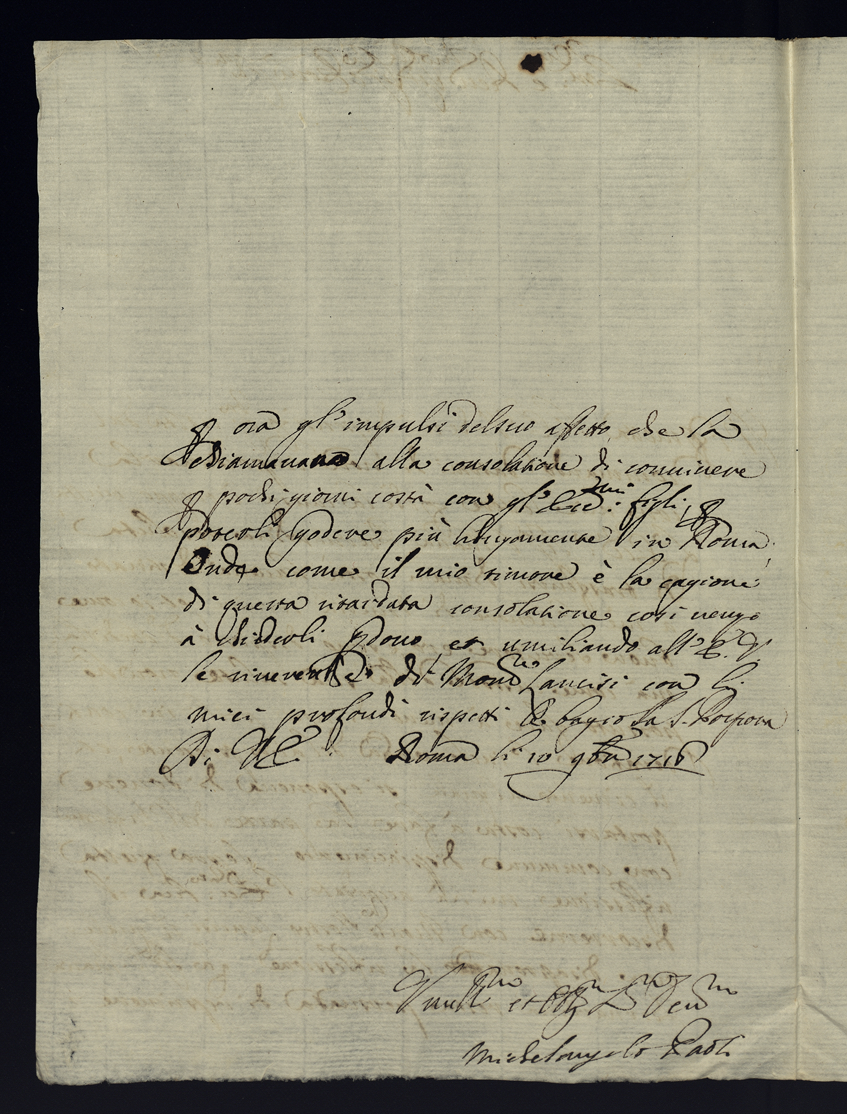 ora gl'impulsi del suo affetto, che la
chiamavano alla consolatione di convivere
pochi giorni costà con gl'Ecc.mi figli,
poterli godere più lungamente in Roma,
Onde come il mio timore è la cagione
di questa ritardata consolatione così vengo
à chiederli p̱dono, et umiliando all'E. V.
le riverenze di Mons.re Lancisi con li
miei profondi rispetti le bagio la S. Porpora
Di V. E. Roma li 10 9bre 1716
Um.mo et Obb.mo Ser.re
Michelangelo Paoli